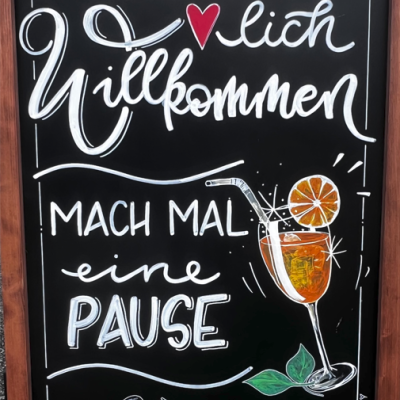 ❤lich
Willkommen
MACH MAL
eine
PAUSE